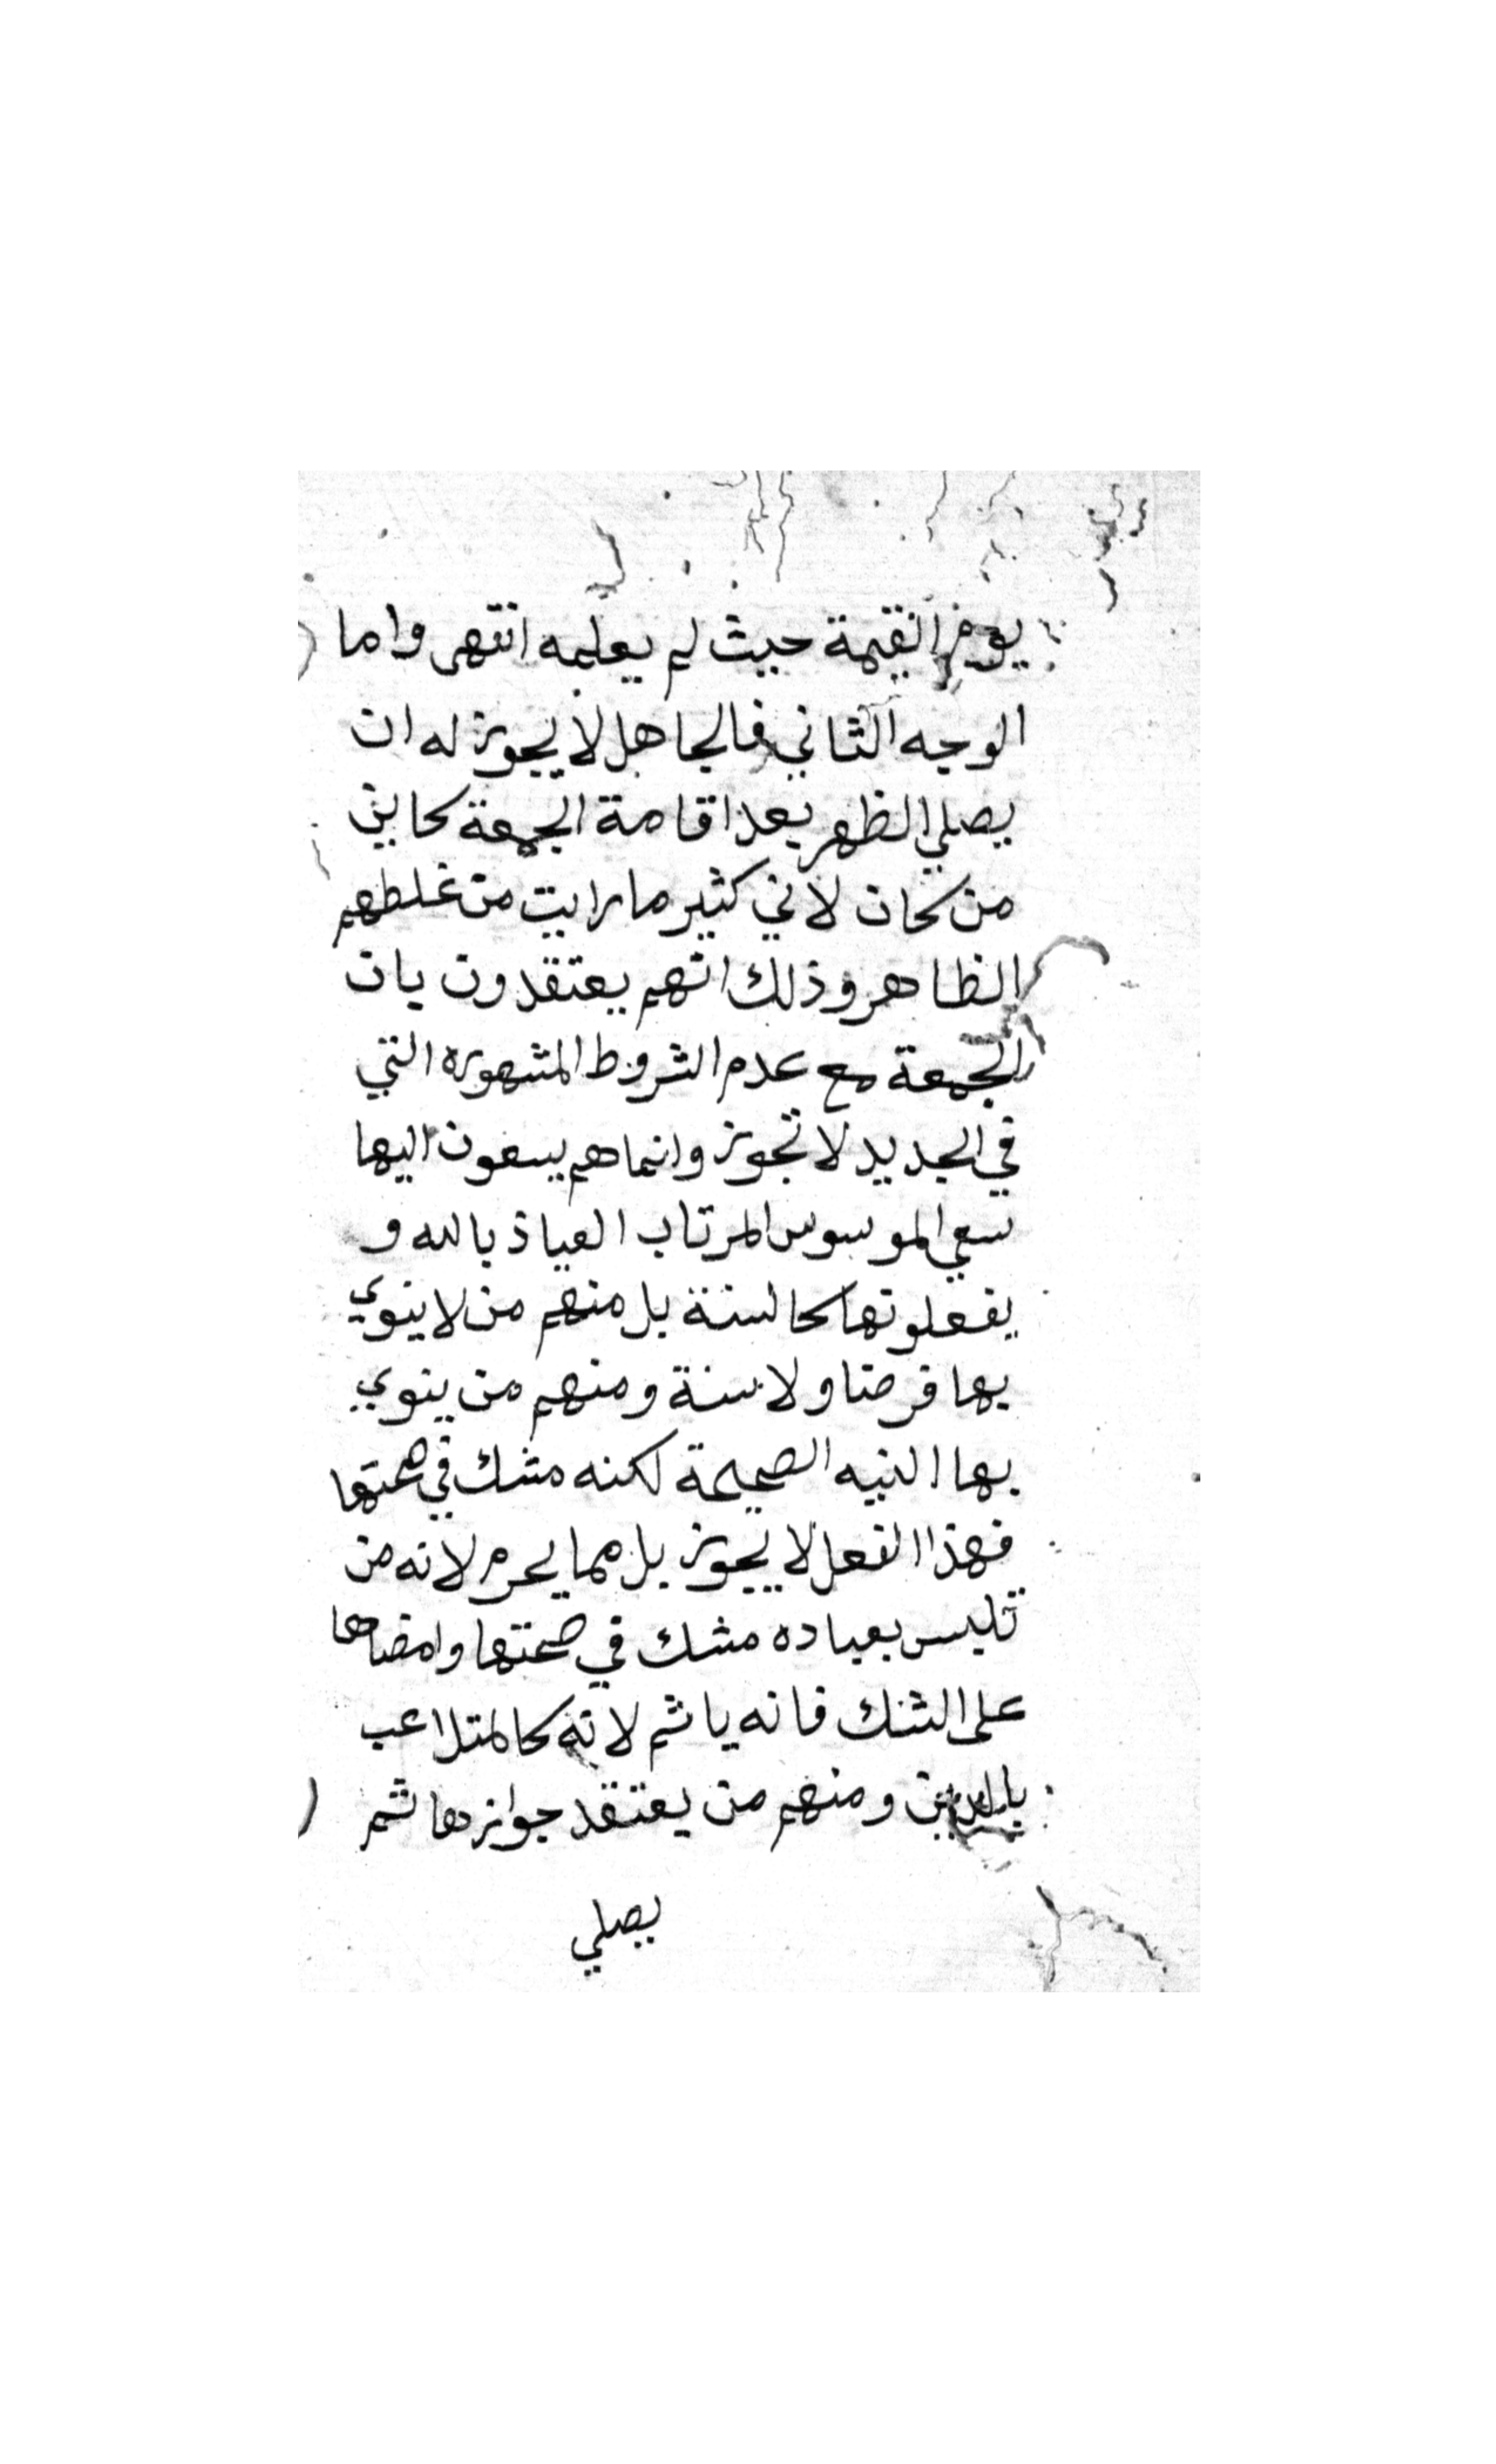 يوم القيمة حيث لم يعلمه انتهى واما
الوجه الثاني فالجاهل لا يجوز له ان
يصلي الظهر بعد اقامة الجمعة كاين
من كان لاني كثير ما رايت من غلطهم
الظاهر وذلك انهم يعتقدون بان
الجمعة مع عدم الشروط المشهوره التي
في الجديد لا تجوز وانما هم يسعون اليها
سعي الموسوس المرتاب العياذ بالله و
يفعلونها كالسنة بل منهم من لا ينوي
بها فرضا ولا سنة ومنهم من ينوي
بها النيه الصحيحة لكنه مشك في صحتها
فهذا الفعل لا يجوز بل مما يحرم لانه من
تلبس بعباده مشك في صحتها وامضاها
على الشك فانه ياثم لانه كالمتلاعب
بالدين ومنهم من يعتقد جوازها ثم
يصلي